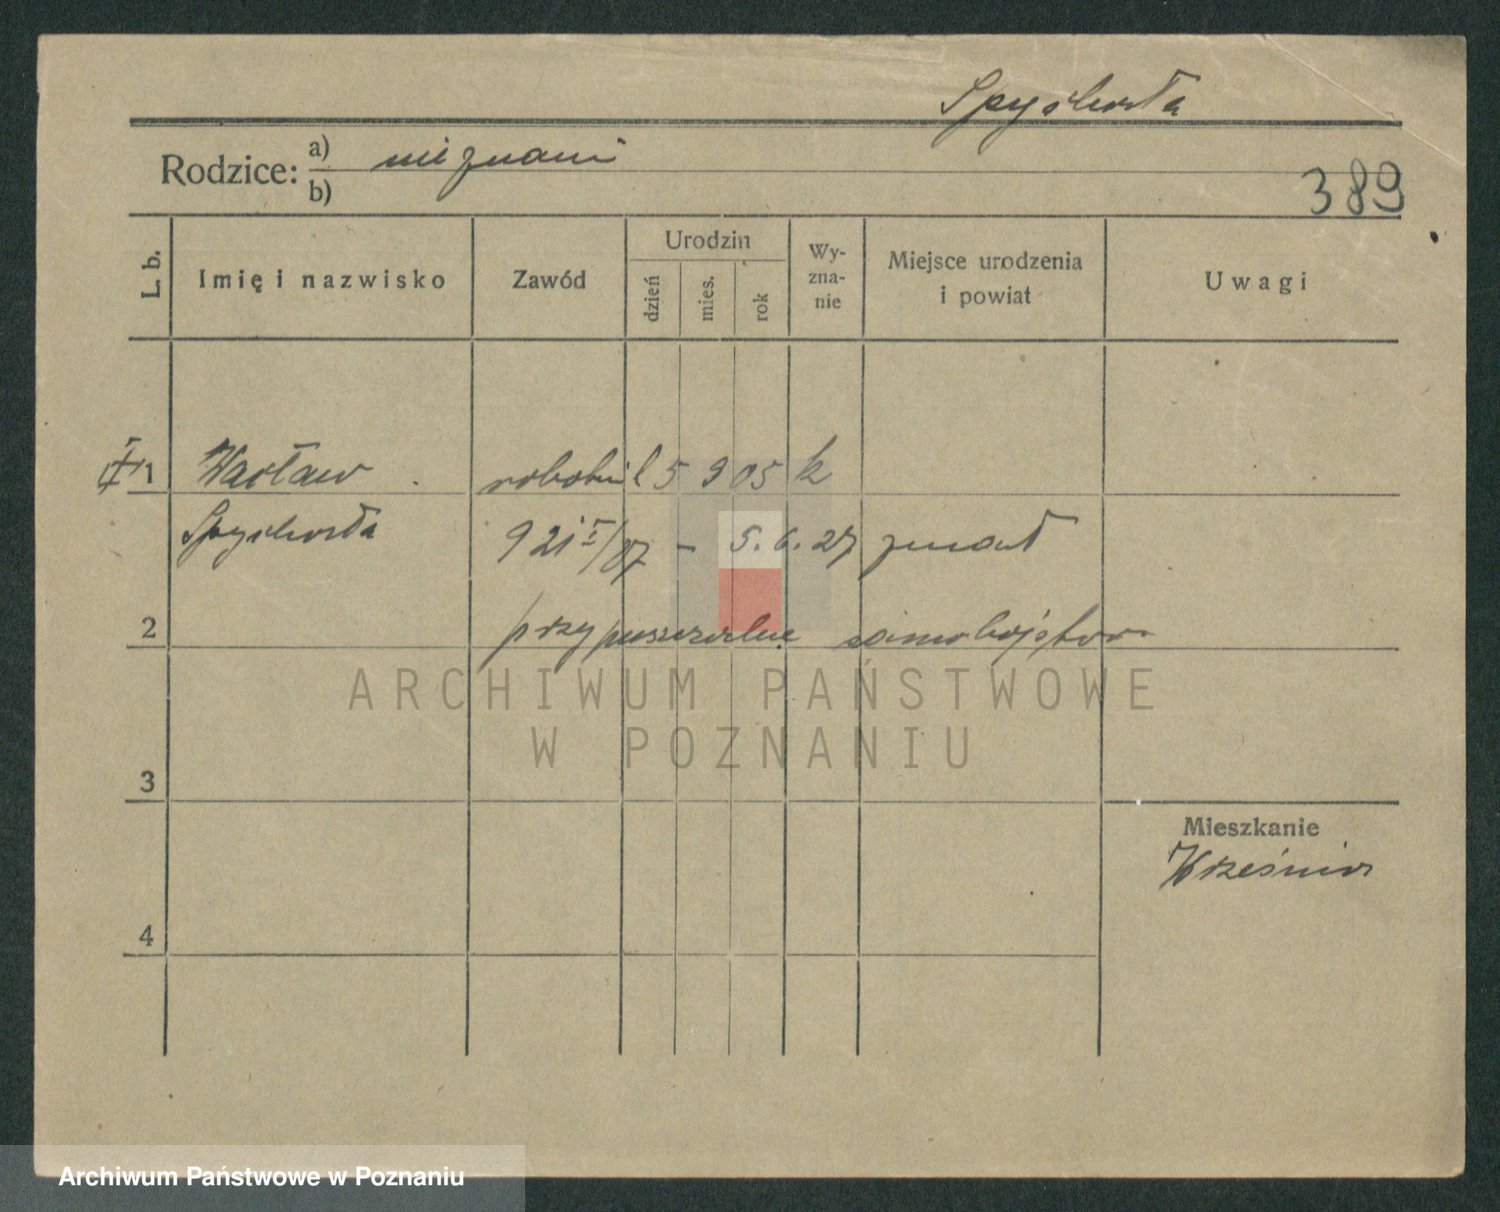 Spychała
Rodzice: a) nieznani
b)
389
L. b. Imię i nazwisko Zawód Urodzin dzień mies. rok Wy-zna-nie Miejsce urodzenia i powiat Uwagi
1 Wacław robotnik 5 9 05 k
Spychała 921 I/87 – 5.6.27 zmarł
2 przypuszczalne samobójstwo
ARCHIWUM PAŃSTWOWE
W POZNANIU
3
Mieszkanie
Września
4
Archiwum Państwowe w Poznaniu